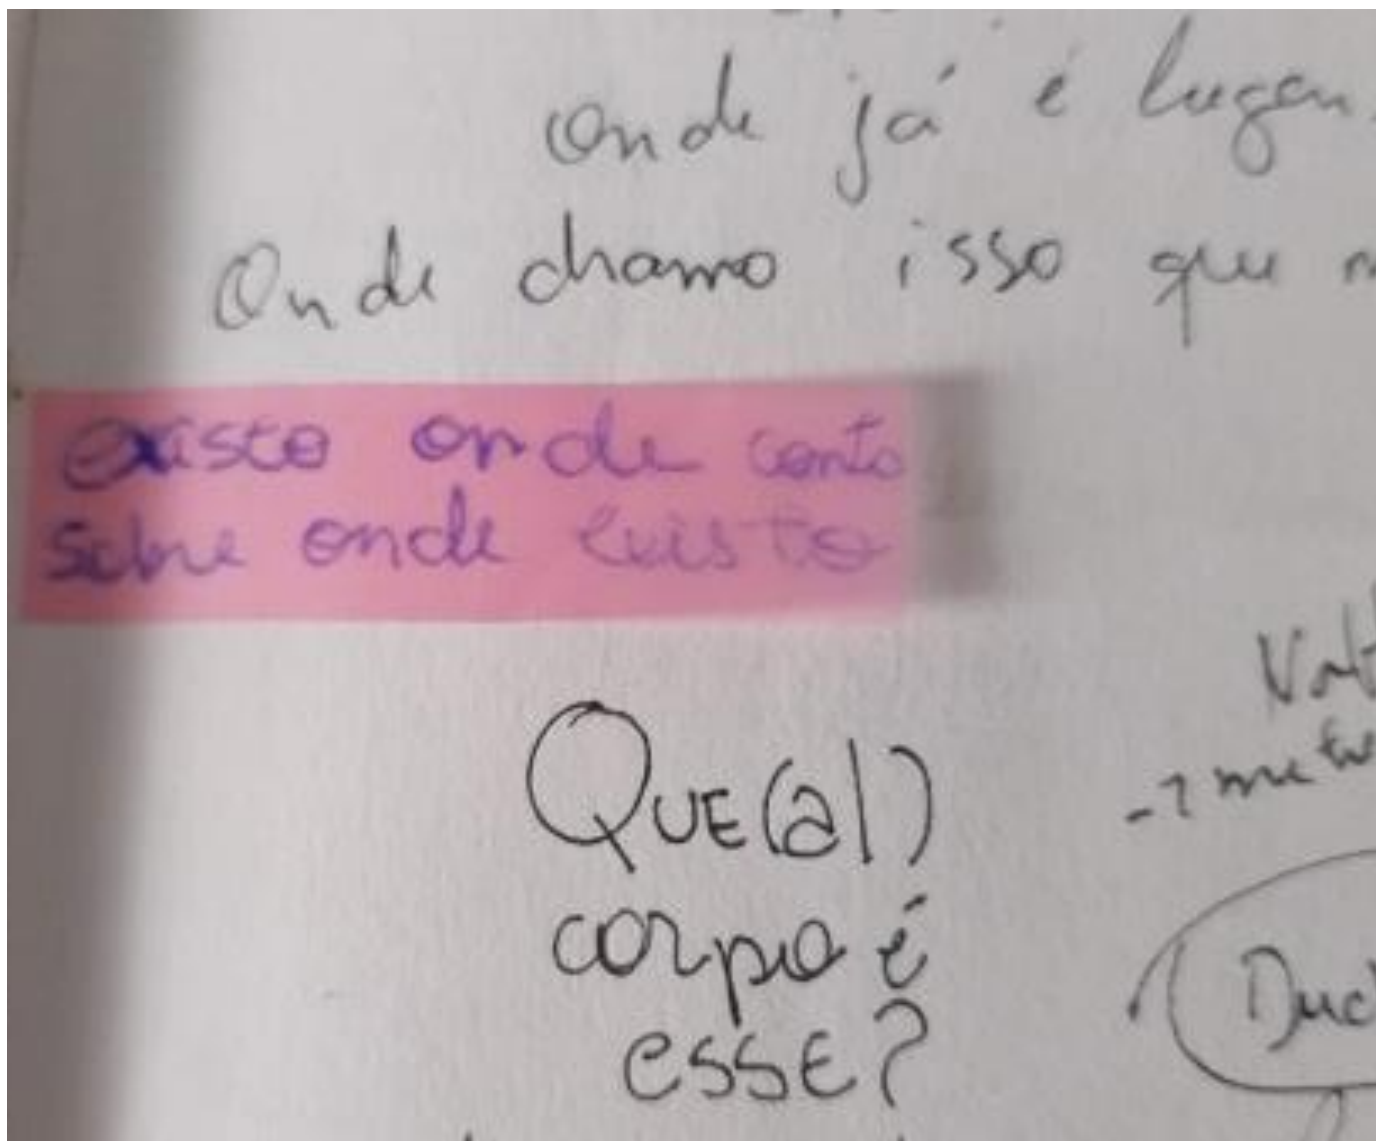 onde já é lugar.
Onde chamo isso que
existo onde conto
sobre onde existo
QUE(al)
corpo é
esse?